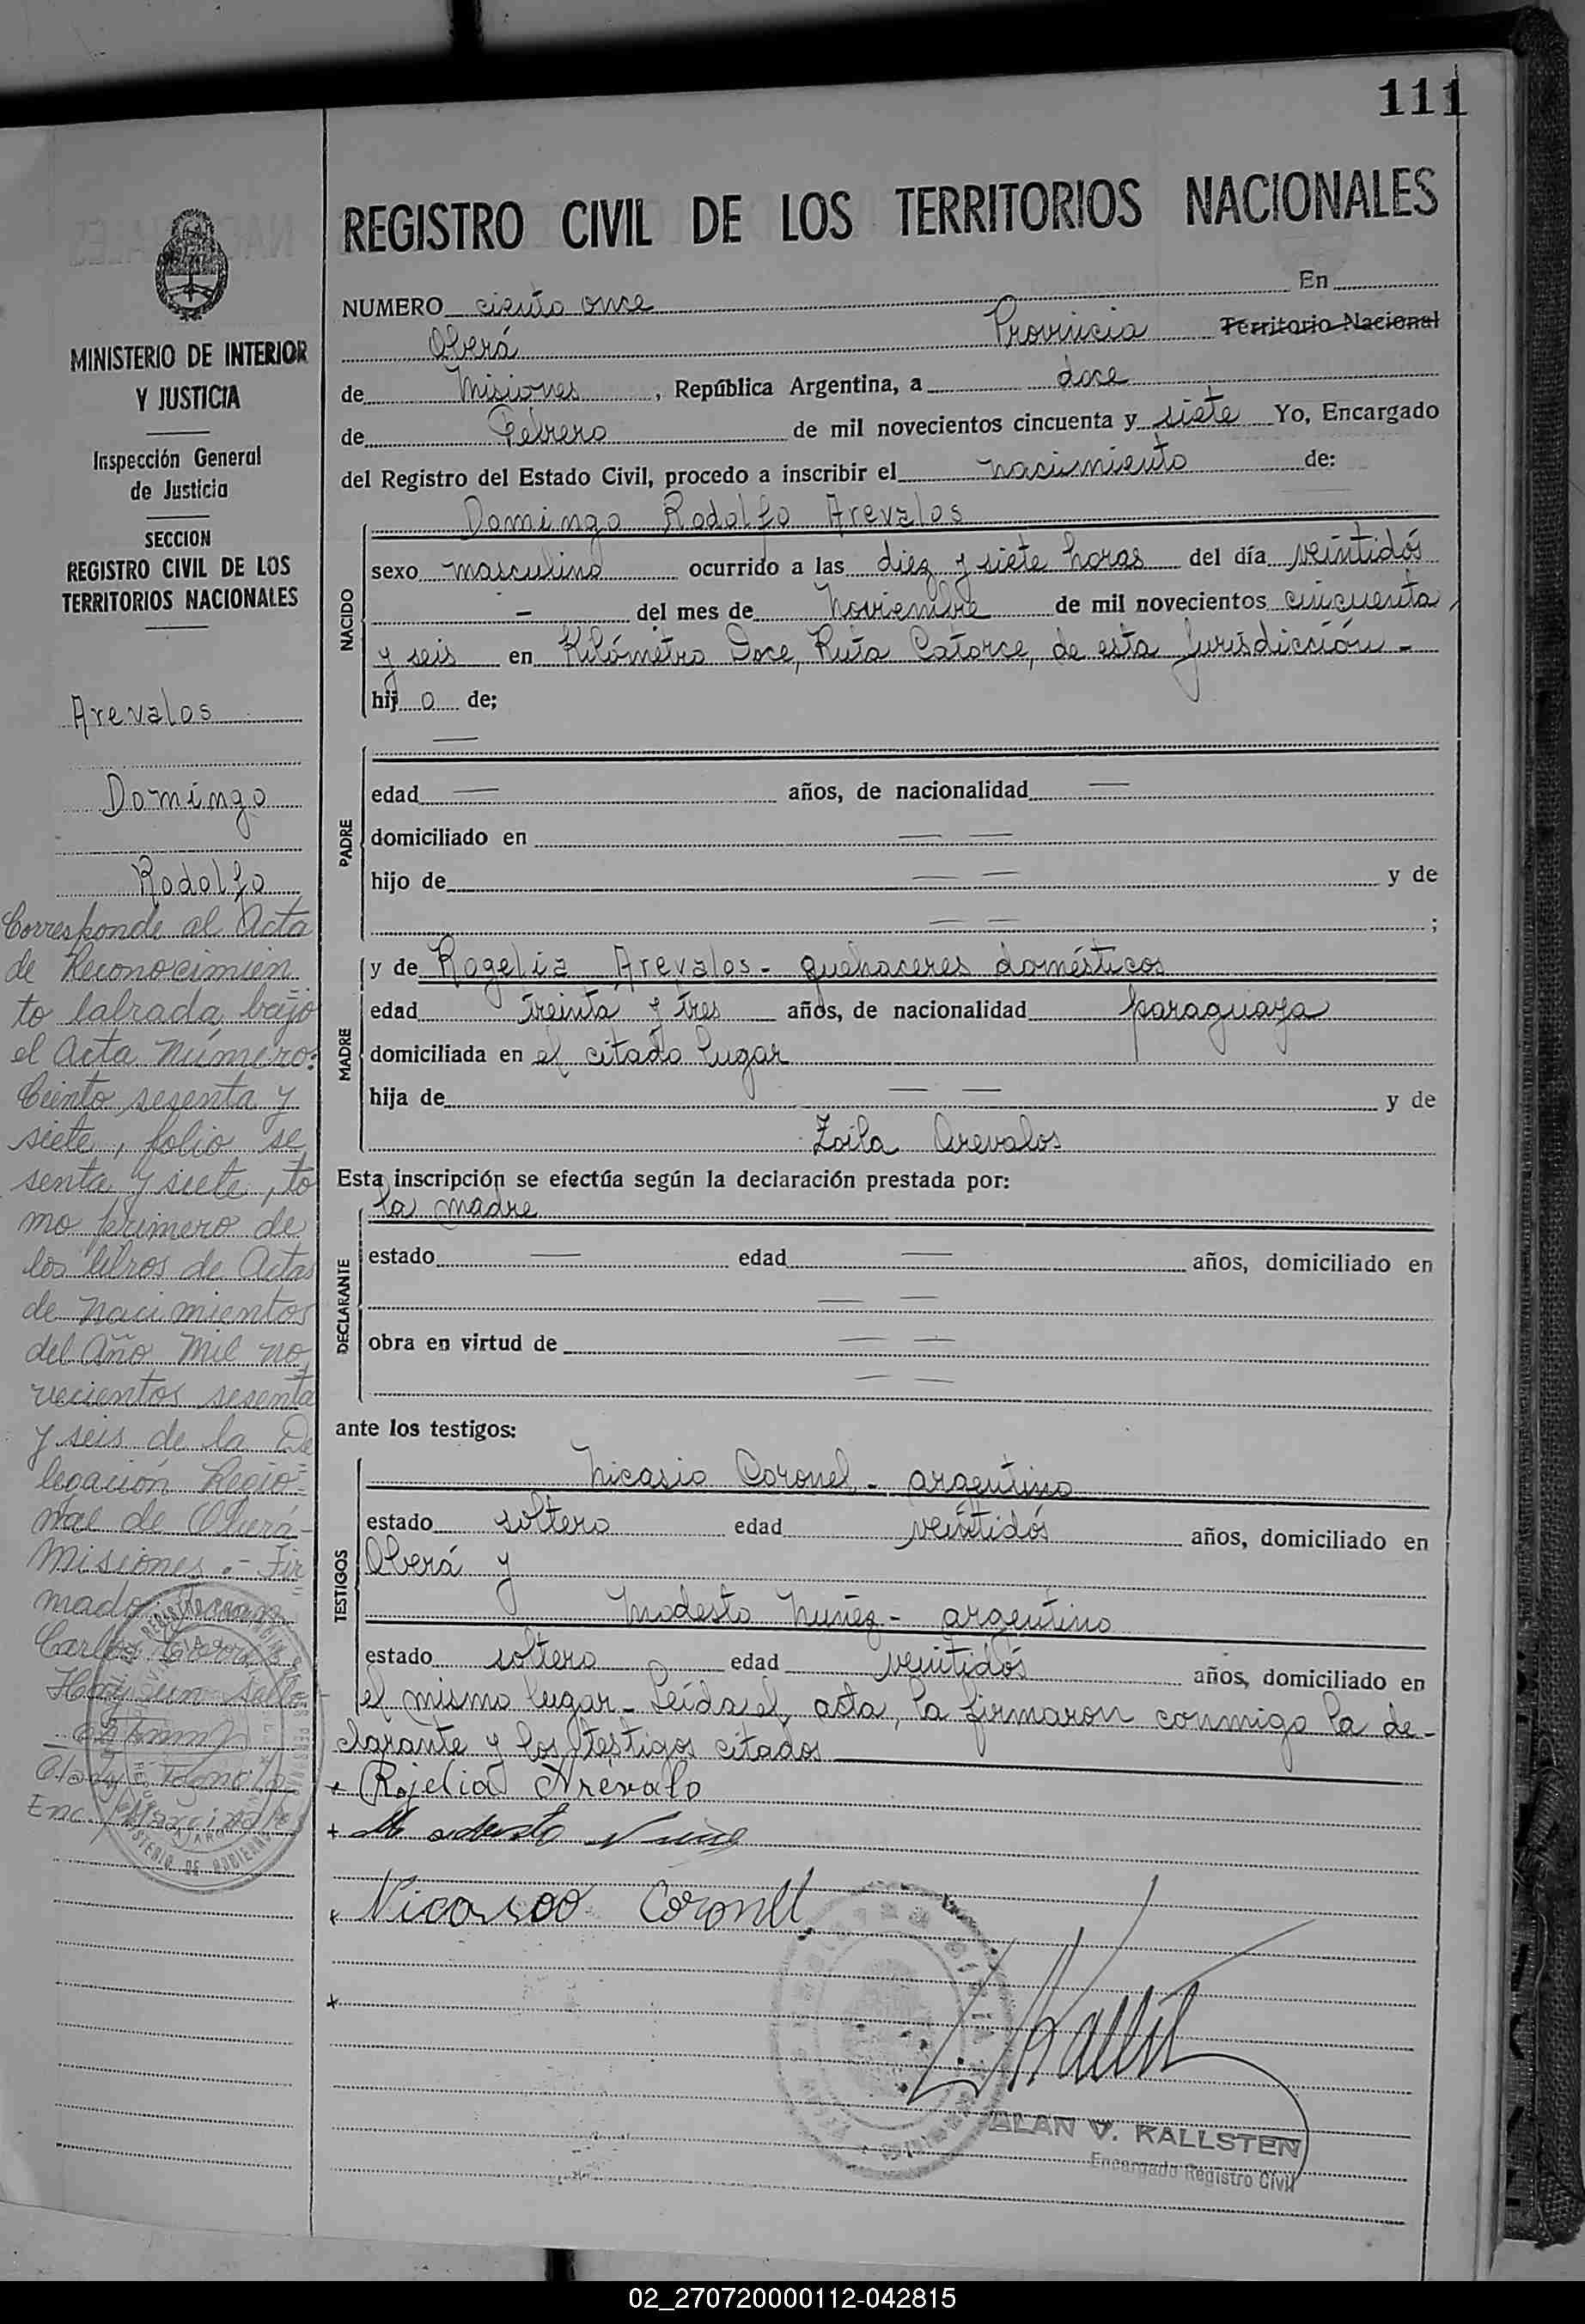 111
REGISTRO CIVIL DE LOS TERRITORIOS NACIONALES
MINISTERIO DE INTERIOR
Y JUSTICIA
Inspección General
de Justicia
SECCION
REGISTRO CIVIL DE LOS
TERRITORIOS NACIONALES
Arevalos
Domingo
Rodolfo
Corresponde al Acta
de Reconocimien
to labrada bajo
el Acta Número:
Ciento sesenta y
siete, folio se
senta y siete, to
mo primero de
los libros de Actas
de Nacimientos
del Año Mil no
vecientos sesenta
y seis de la De
legación Regio
nal de Oberá-
Misiones.- Fir
mado:
Carlos
Hay un sello
NUMERO ciento once En
Oberá Provincia Territorio Nacional
de Misiones, República Argentina, a doce
de Febrero de mil novecientos cincuenta y siete Yo, Encargado
del Registro del Estado Civil, procedo a inscribir el nacimiento de:
NACIDO
Domingo Rodolfo Arevalos
sexo masculino ocurrido a las diez y siete horas del día veintidós
- del mes de Noviembre de mil novecientos cincuenta
y seis en Kilómetro Doce, Ruta Catorce, de esta Jurisdicción -
hij o de;
PADRE
—
edad — años, de nacionalidad —
domiciliado en — —
hijo de — — y de
— — ;
MADRE
y de Rogelia Arevalos - quehaceres domésticos
edad treinta y tres años, de nacionalidad paraguaya
domiciliada en el citado lugar
hija de — — y de
Zoila Arevalos
Esta inscripción se efectúa según la declaración prestada por:
DECLARANTE
la madre
estado — edad — años, domiciliado en
— —
obra en virtud de — —
— —
ante los testigos:
TESTIGOS
Nicasio Coronel - argentino
estado soltero edad veintidós años, domiciliado en
Oberá y
Modesto Nuñez - argentino
estado soltero edad veintidós años, domiciliado en
el mismo lugar - Leída el acta, la firmaron conmigo la de-
clarante y los testigos citados
Rojelia Arévalo
Modesto
Nicasoo Coronel
ALAN V. KALLSTEN
Encargado Registro Civil
02_270720000112-042815